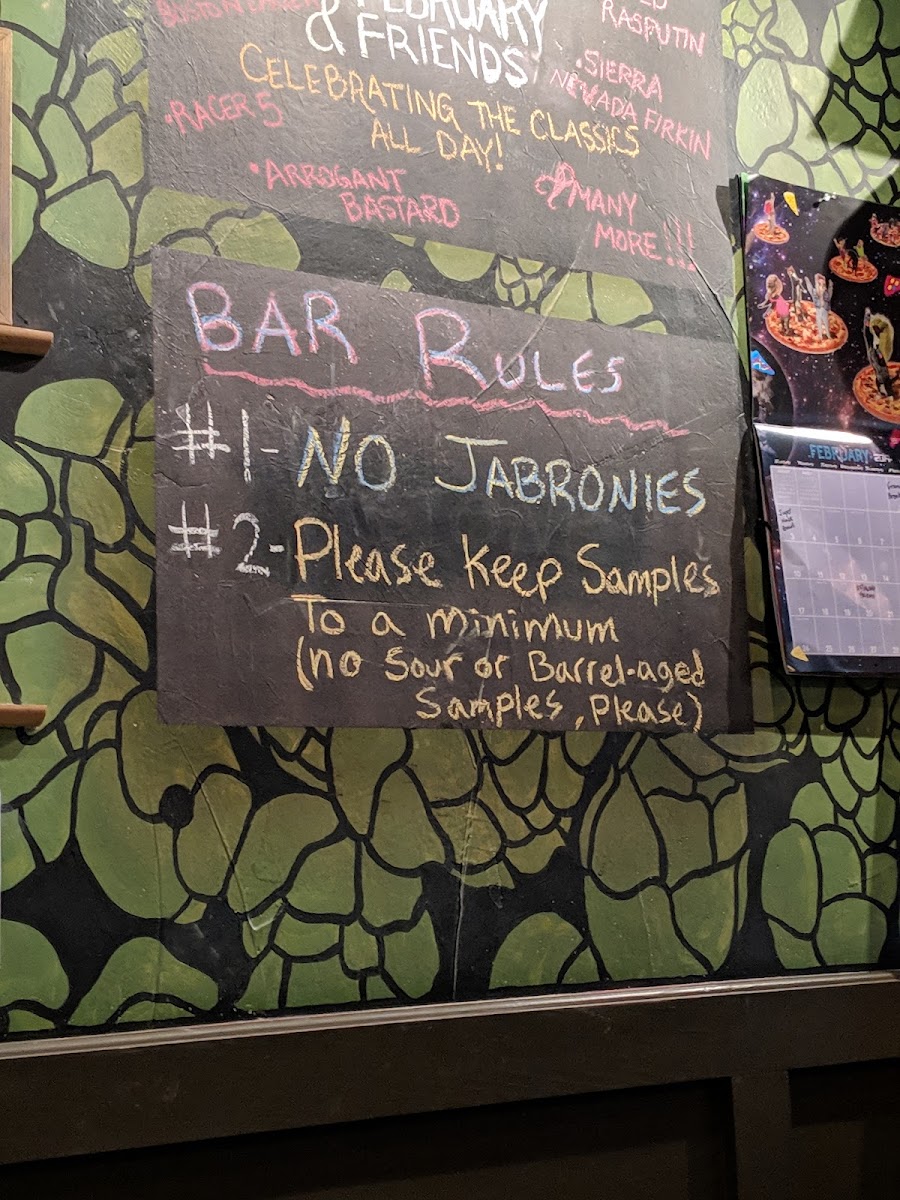 FEBRUARY
& FRIENDS
CELEBRATING THE CLASSICS
ALL DAY!
RASPUTIN
•SIERRA
NEVADA FIRKIN
•RACER 5
•ARROGANT
BASTARD
& MANY
MORE!!!
BAR RULES
#1- NO JABRONIES
#2- Please Keep Samples
To a minimum
(no Sour or Barrel-aged
Samples, Please)
FEBRUARY